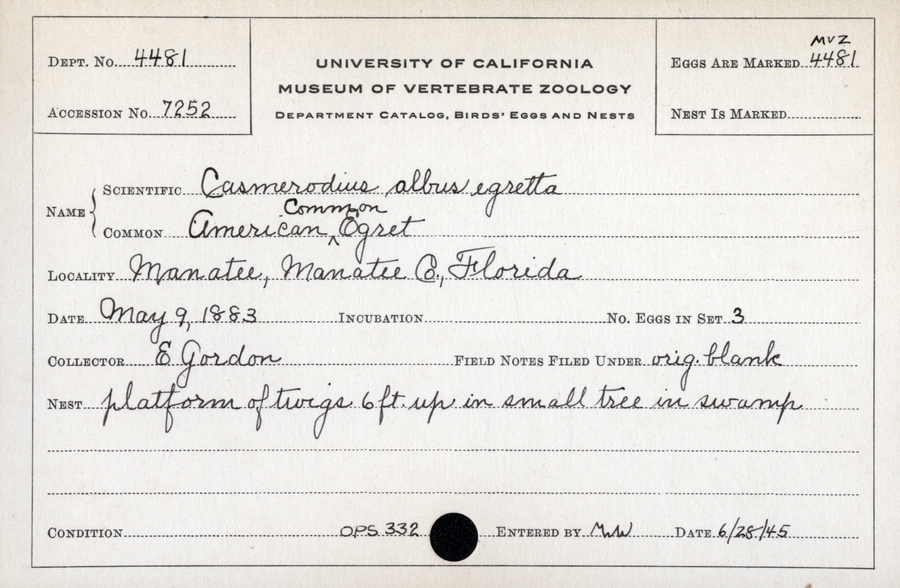 Dept. No. 4481
Accession No. 7252
UNIVERSITY OF CALIFORNIA
MUSEUM OF VERTEBRATE ZOOLOGY
Department Catalog, Birds' Eggs and Nests
MVZ
Eggs Are Marked 4481
Nest Is Marked
Name { Scientific Casmerodius albus egretta
Common
Common American ^ Egret
Locality Manatee, Manatee Co., Florida
Date May 9, 1883 Incubation No. Eggs in Set 3
Collector E Gordon Field Notes Filed Under orig. blank
Nest platform of twigs 6 ft. up in small tree in swamp
Condition OPS 332 Entered by MW Date 6/28/45